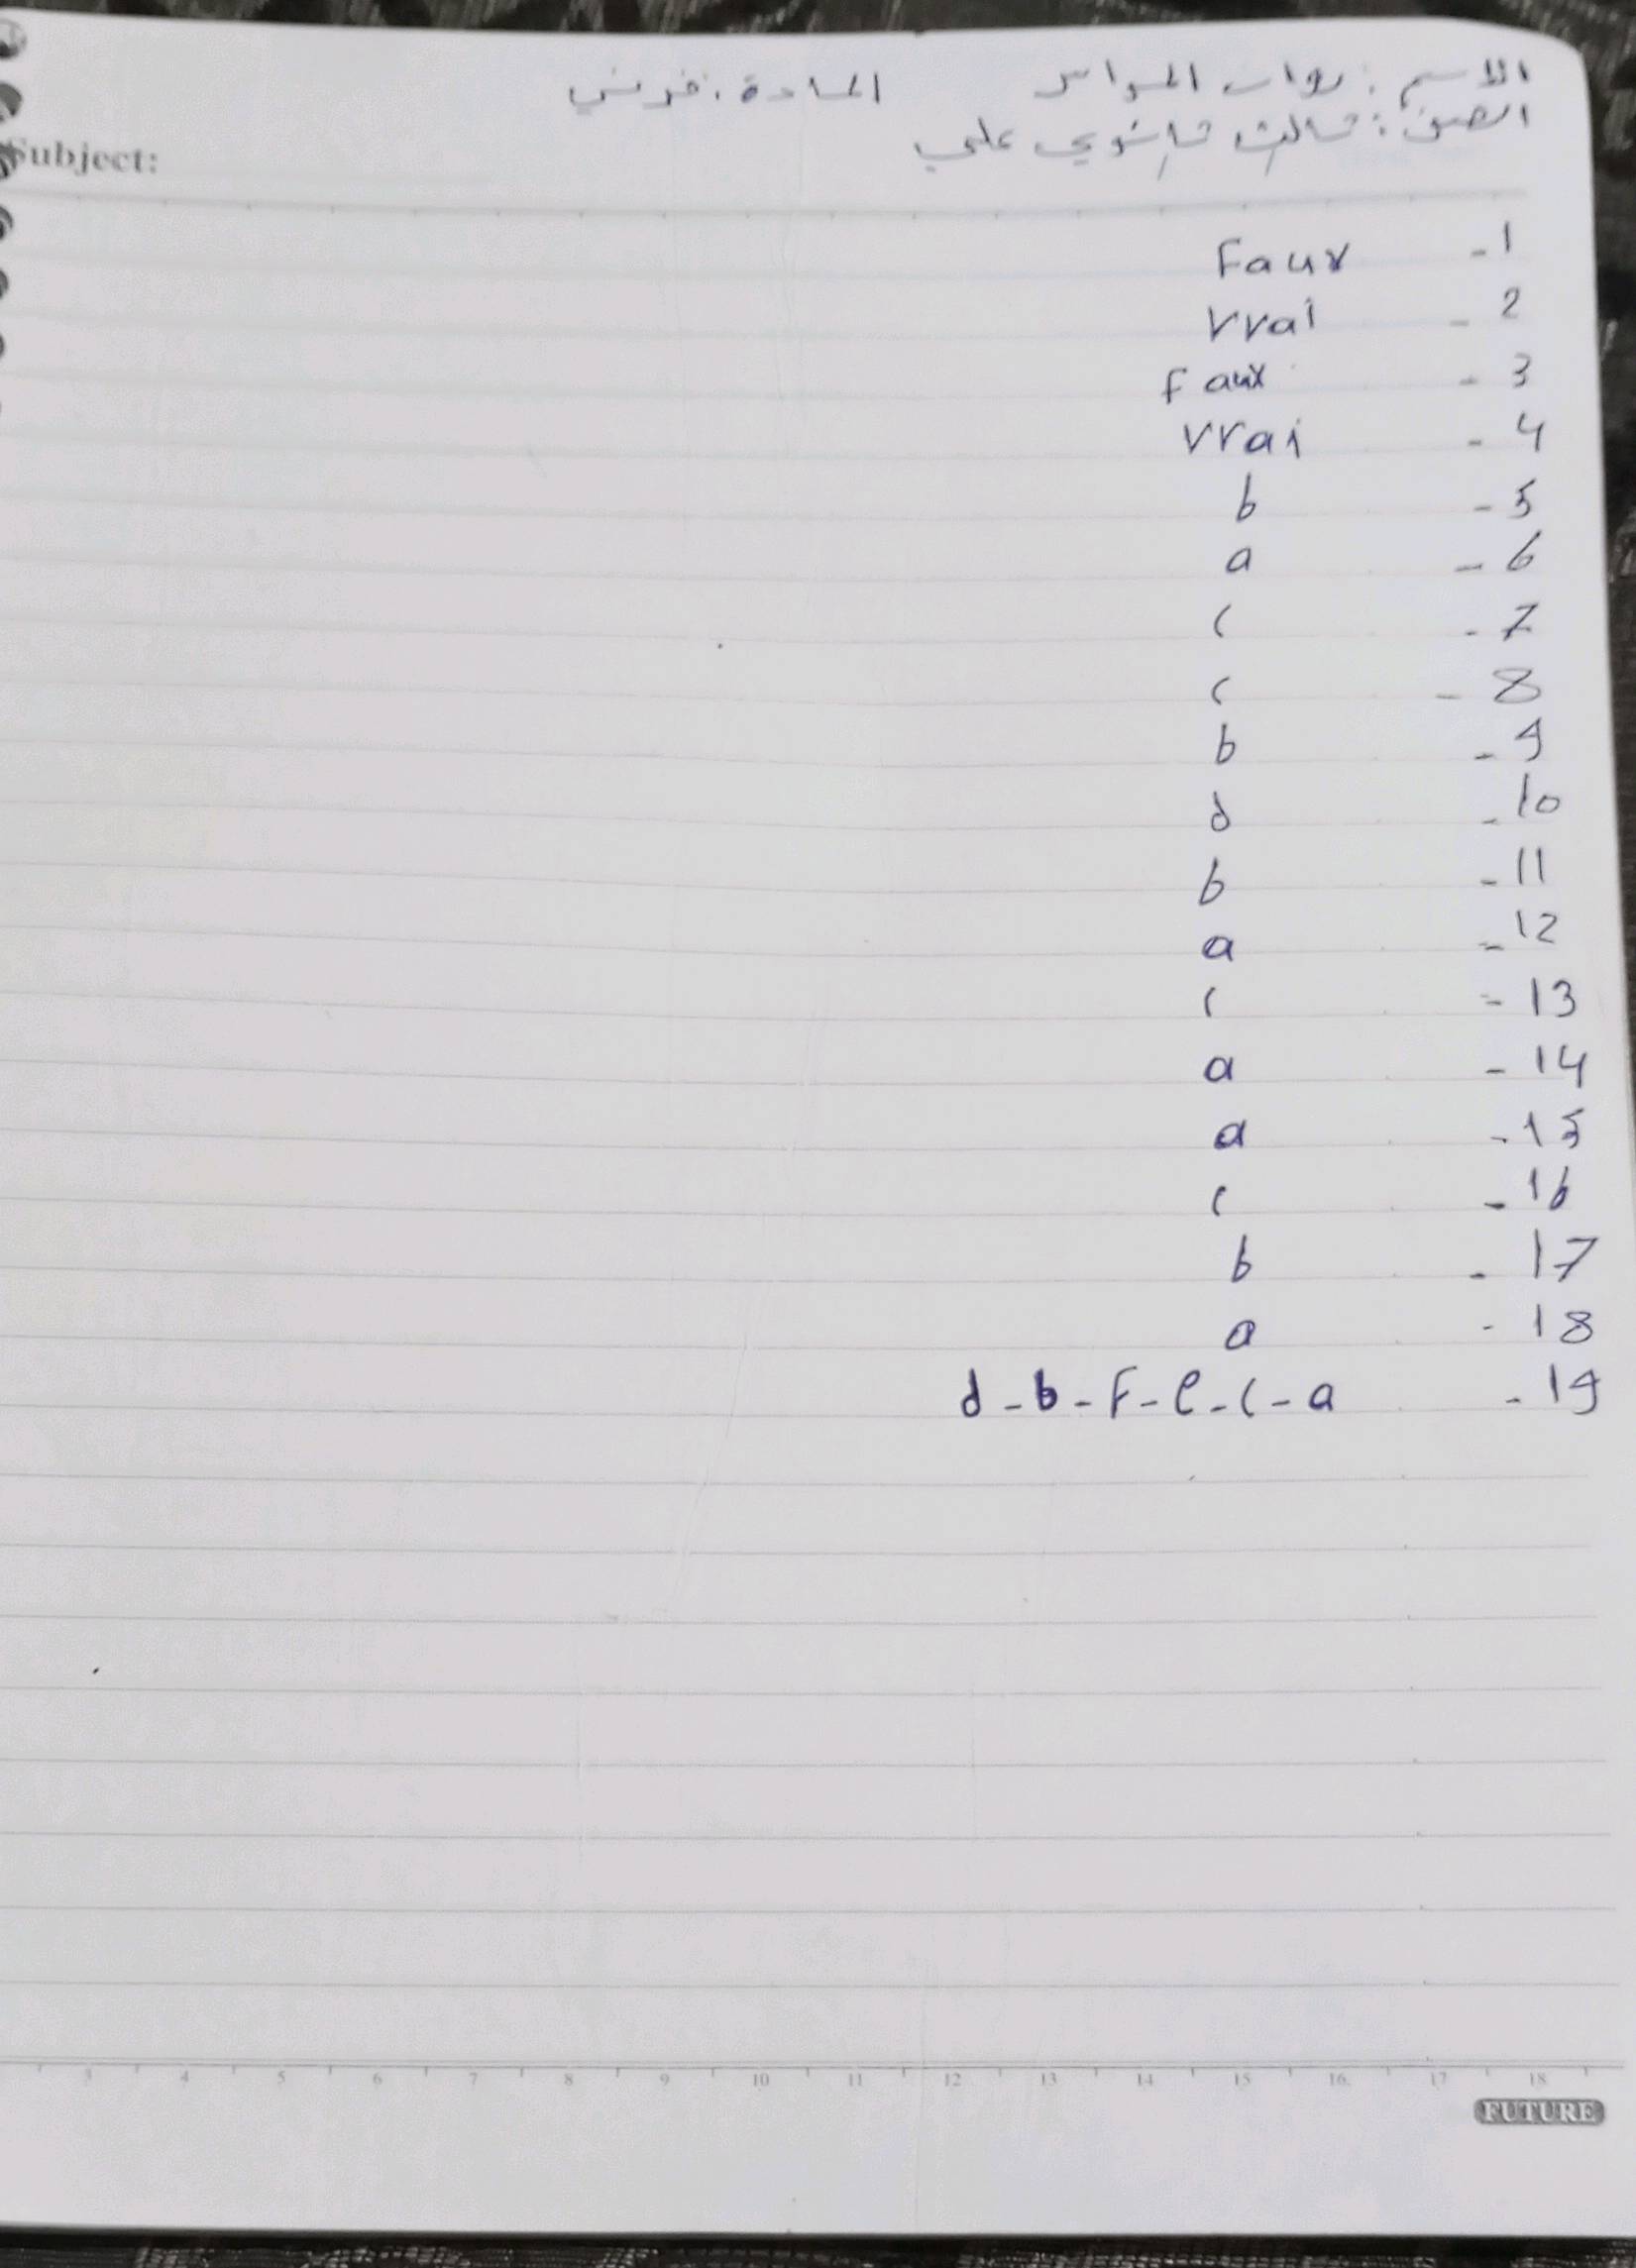 الاسم: روان المواس المادة: فرنسي
الصف: ثالث ثانوي علمي
Subject:
1- Faux
2- Vrai
3- Faux
4- Vrai
5- b
6- a
7- c
8- c
9- b
10- d
11- b
12- a
13- c
14- a
15- a
16- c
17- b
18- a
19- d-b-F-e-c-a
3 4 5 6 7 8 9 10 11 12 13 14 15 16 17 18
FUTURE